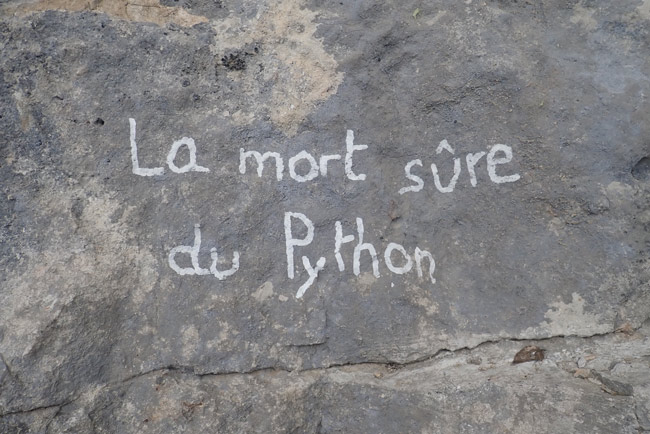 La mort sûre
du Python